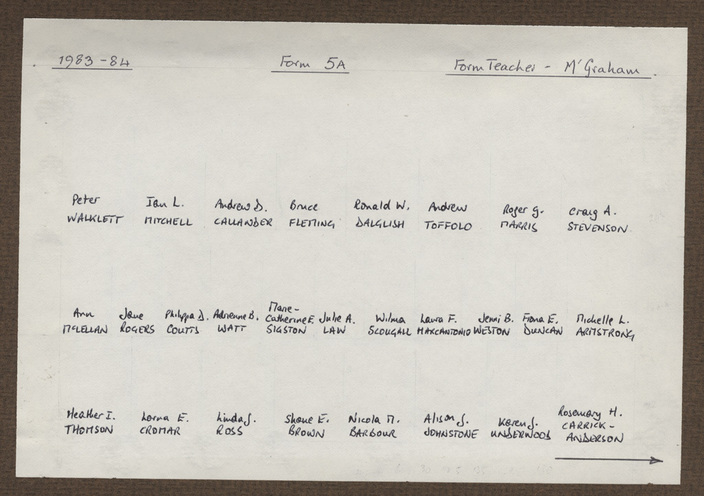 1983-84 Form 5A Form Teacher - Mr Graham
Peter Ian L. Andrew D. Bruce Ronald W. Andrew Roger G. Craig A.
WALKLETT MITCHELL CALLANDER FLEMING DALGLISH TOFFOLO MARRIS STEVENSON
Ann Jane Philippa D. Adrienne B. Marie-Catherine E. Julie A. Wilma Laura F. Jenni B. Fiona E. Michelle L.
McLELLAN ROGERS COUTTS WATT SIGSTON LAW SCOUGALL MARCANTONIO WESTON DUNCAN ARMSTRONG
Heather I. Lorna E. Linda J. Shane E. Nicola M. Alison J. Karen J. Rosemary H.
THOMSON CROMAR ROSS BROWN BARBOUR JOHNSTONE UNDERWOOD CARRICK-
ANDERSON